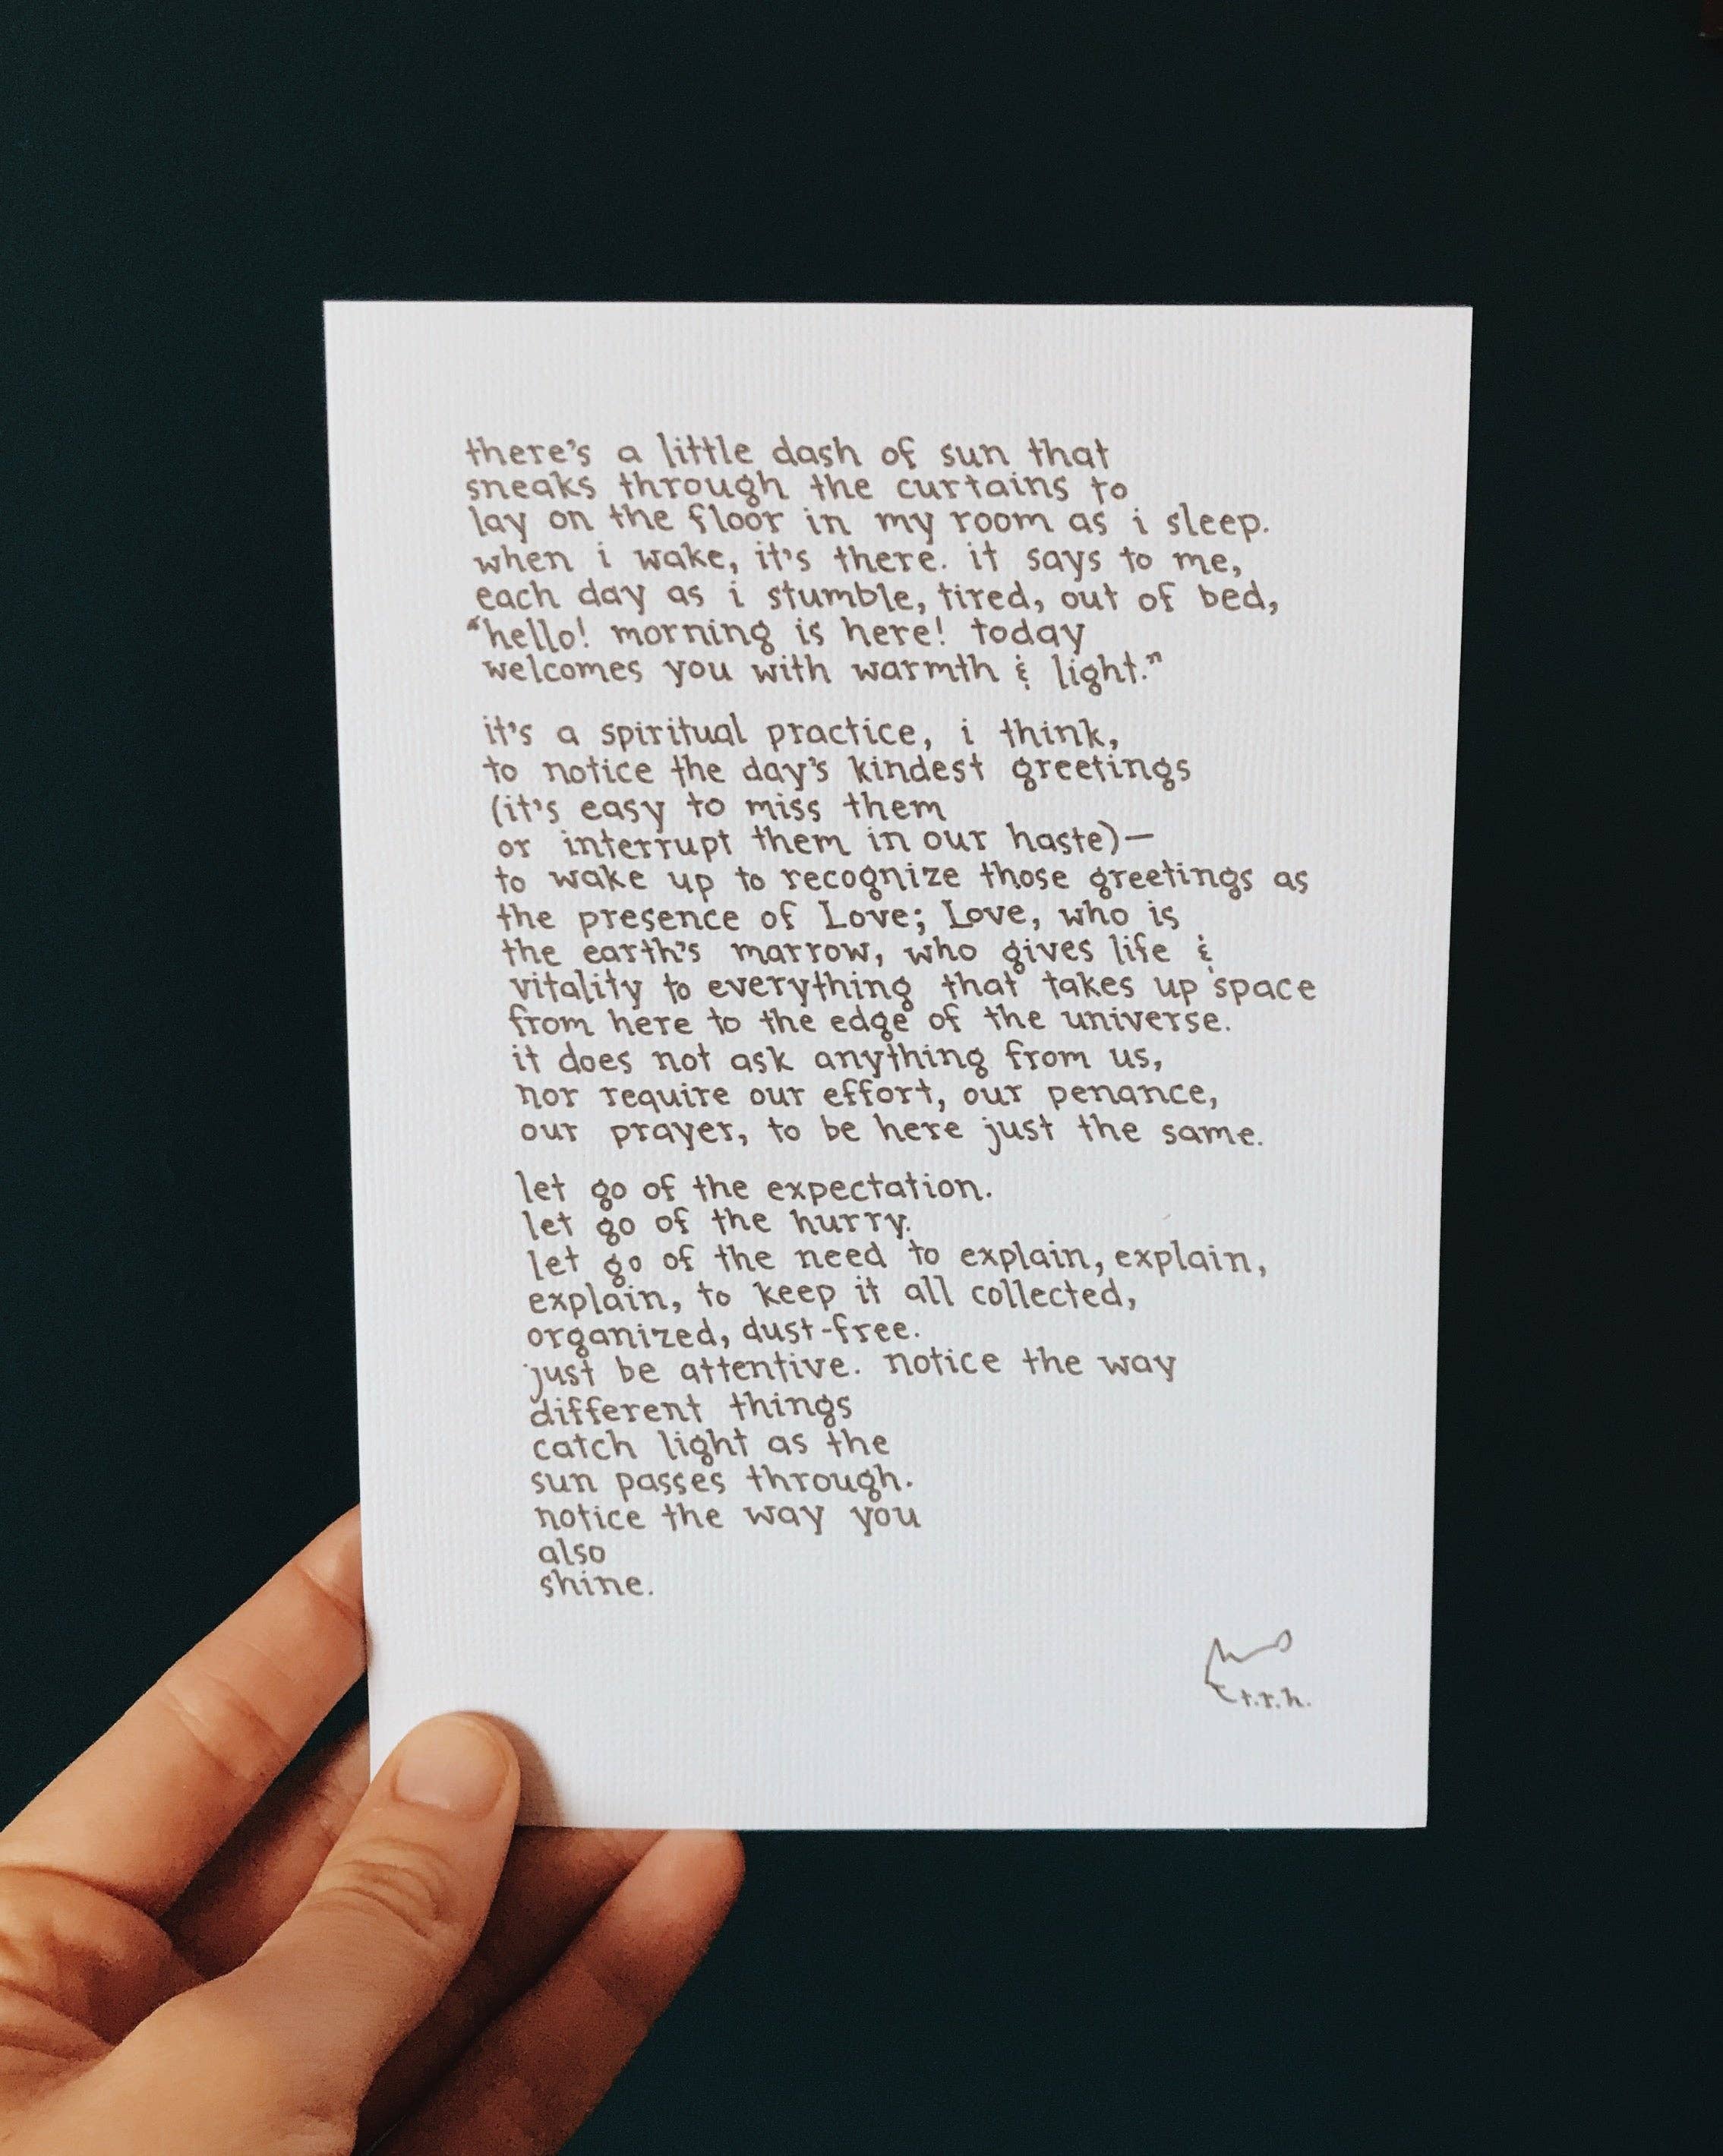 there's a little dash of sun that
sneaks through the curtains to
lay on the floor in my room as i sleep.
when i wake, it's there. it says to me,
each day as i stumble, tired, out of bed,
“hello! morning is here! today
welcomes you with warmth & light.”
it's a spiritual practice, i think,
to notice the day's kindest greetings
(it's easy to miss them
or interrupt them in our haste)—
to wake up to recognize those greetings as
the presence of Love; Love, who is
the earth's marrow, who gives life &
vitality to everything that takes up space
from here to the edge of the universe.
it does not ask anything from us,
nor require our effort, our penance,
our prayer, to be here just the same.
let go of the expectation.
let go of the hurry.
let go of the need to explain, explain,
explain, to keep it all collected,
organized, dust-free.
just be attentive. notice the way
different things
catch light as the
sun passes through.
notice the way you
also
shine.
t.r.h.